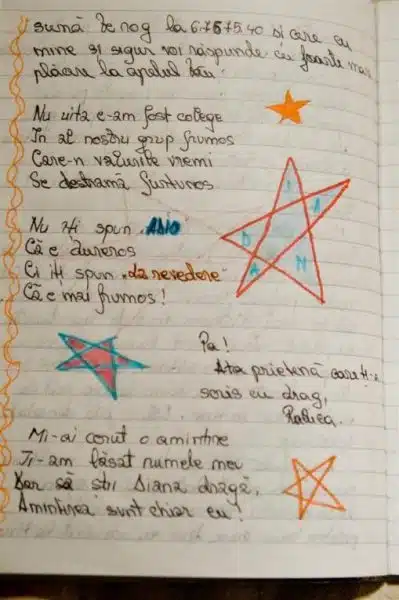 sună te rog la 6.75.75.40 și cere cu
mine și sigur voi răspunde cu foarte mare
plăcere la apelul tău.
Nu uita c-am fost colege
În al nostru grup frumos
Care-n valurile vremi
Se destramă furtunos
Nu îți spun „Adio"
Că e dureros
Ci îți spun „La revedere"
Că e mai frumos!
D I A N A
Pa!
A ta prietenă care ți-a
scris cu drag,
Mi-ai cerut o amintire
Ți-am lăsat numele meu
Dar să știi Diana dragă,
Amintirea sunt chiar eu!